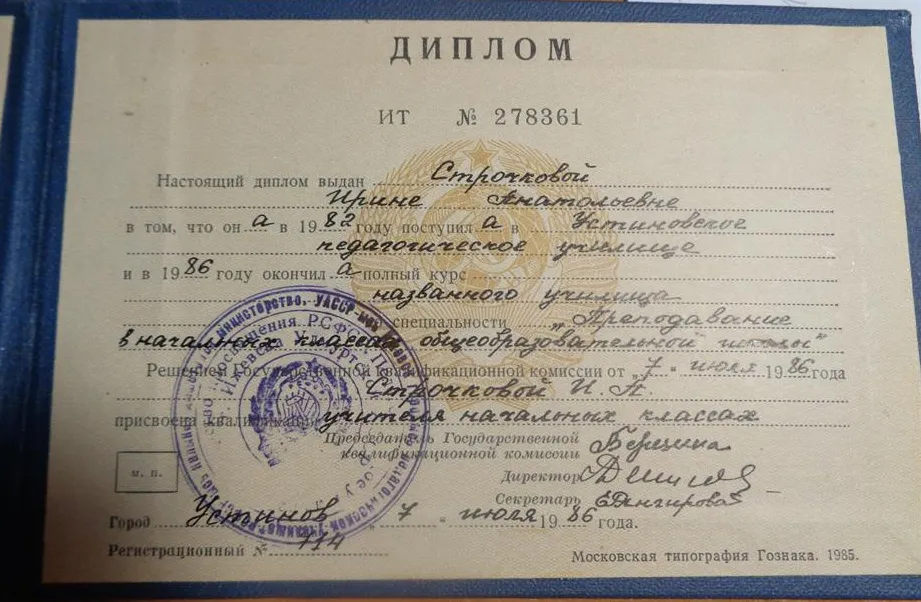 ДИПЛОМ
ИТ № 278361
Настоящий диплом выдан Строчковой
Ирине Анатольевне
в том, что он а в 1982 году поступил а в Устиновское
педагогическое училище
и в 1986 году окончил а полный курс
названного училища
специальности „Преподавание
в начальных классах общеобразовательной школы"
Решением Государственной квалификационной комиссии от „7" июля 1986 года
Строчковой И. А.
присвоена квалификация учителя начальных классах
Председатель Государственной
квалификационной комиссии
м. п.
Директор
Секретарь
Город Устинов 7 " июля 1986 года.
Регистрационный № 114
Московская типография Гознака. 1985.